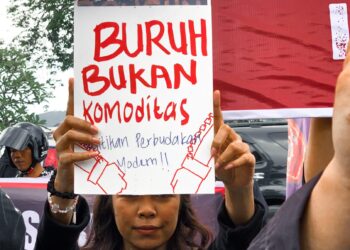 BURUH
BUKAN
KOMODITAS
Hentikan Perbudakan
Modern!!